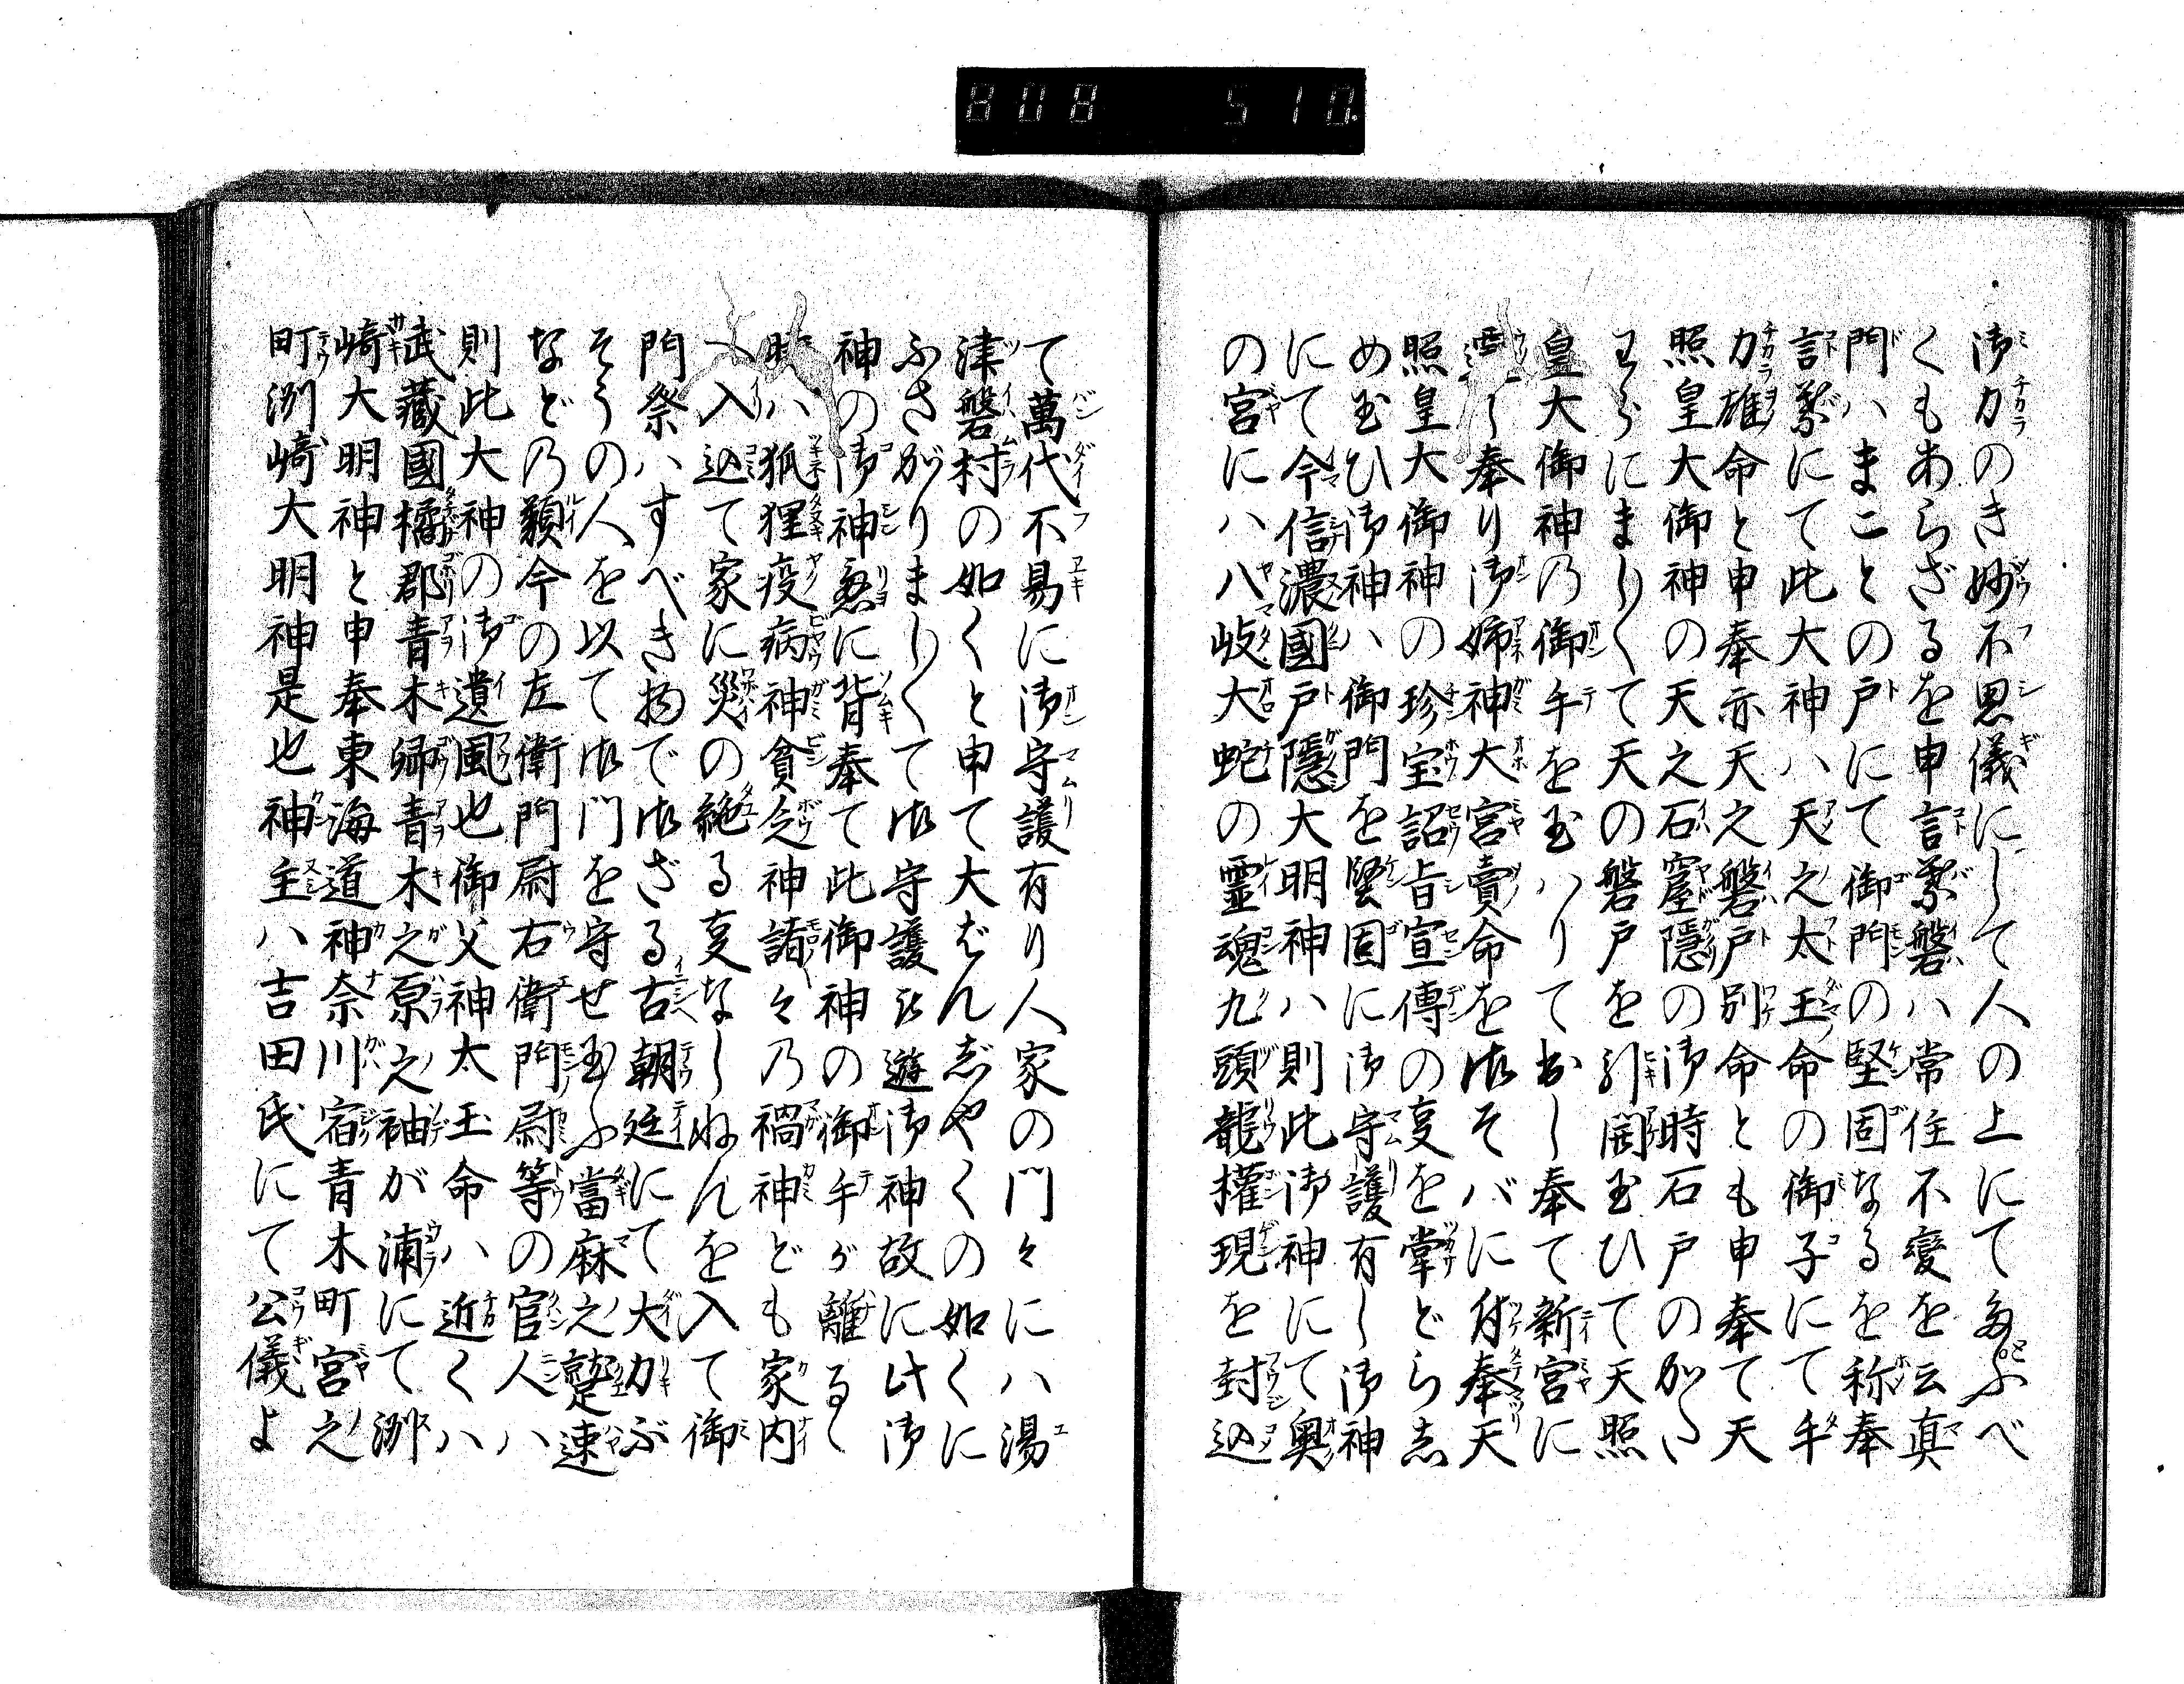 808 510
御力のき妙不思儀にして人の上にて及ぶべ
くもあらざるを申言霊磐ハ常住不變を云真
門ハまことの戸にて御門の堅固なるを称奉
言葉にて此大神ハ天之太玉命の御子にて手
力雄命と申奉亦天之磐戸別命とも申奉て天
照皇大御神の天之石窟隠の御時石戸のかた
わらにまし〱て天の磐戸を引開玉ひて天照
皇大御神乃御手を玉ハりて出し奉て新宮に
霊し奉り御姉神大宮賣命を御そバに付奉天
照皇大御神の珍宝詔旨宣傳の事を掌どらし
め玉ひ御神ハ御門を堅固に御守護有し御神
にて今信濃國戸隠大明神ハ則此御神にて奥
の宮にハ八岐大蛇の霊魂九頭龍權現を封込
て萬代不易に御守護有り人家の門々にハ湯
津磐村の如くと申て大ばんじやくの如くに
ふさがりまし〱て御守護被遊御神故に此御
神の御神慮に背奉て此御神の御手が離るゝ
時ハ狐狸疫病神貧乏神諸々乃禍神ども家内
へ入込て家に災の絶る事なしぬんを入て御
門祭ハすべき物で御ざる古朝廷にて大力ぶ
そうの人を以て御門を守せ玉ふ當麻之蹴速
など乃類今の左衛門尉右衛門尉等の官人ハ
則此大神の御遺風也御父神太玉命ハ近くハ
武藏國橘郡青木郷青木之原之袖が浦にて洲
崎大明神と申奉東海道神奈川宿青木町宮之
町洲崎大明神是也神主ハ吉田氏にて公儀よ